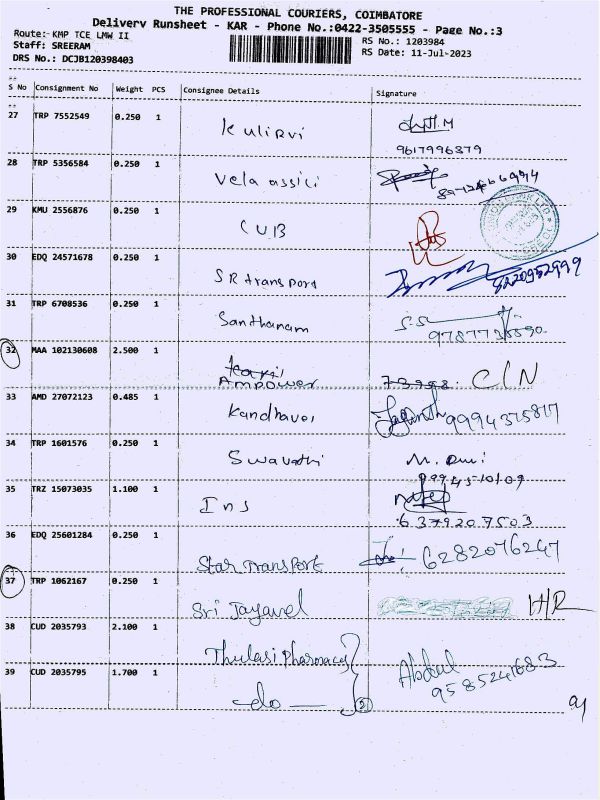 THE PROFESSIONAL COURIERS, COIMBATORE
Delivery Runsheet - KAR - Phone No.:0422-3505555 - Page No.:3
Route: KMP TCE LMW II
RS No.: 1203984
Staff: SREERAM
RS Date: 11-Jul-2023
DRS No.: DCJB120398403
S No Consignment No Weight PCS Consignee Details Signature
27 TRP 7552549 0.250 1 Kulirvi
9617996379
28 TRP 5356584 0.250 1 Vela assici
29 KMU 2556876 0.250 1 CUB
30 EDQ 24571678 0.250 1 SR transport
8220952999
31 TRP 6708536 0.250 1 Santhanam S.S
32 MAA 102130608 2.500 1
Ampower C/N
33 AMD 27072123 0.485 1 Kandhavel 9994375817
34 TRP 1601576 0.250 1 Swavathi
9994510109
35 TRZ 15073035 1.100 1 Ins
6379207503
36 EDQ 25601284 0.250 1 Star Transport 6282076247
37 TRP 1062167 0.250 1 Sri Jayavel H/R
38 CUD 2035793 2.100 1 Thulasi Pharmacy Abdul
39 CUD 2035795 1.700 1 -do- 2 9585241683